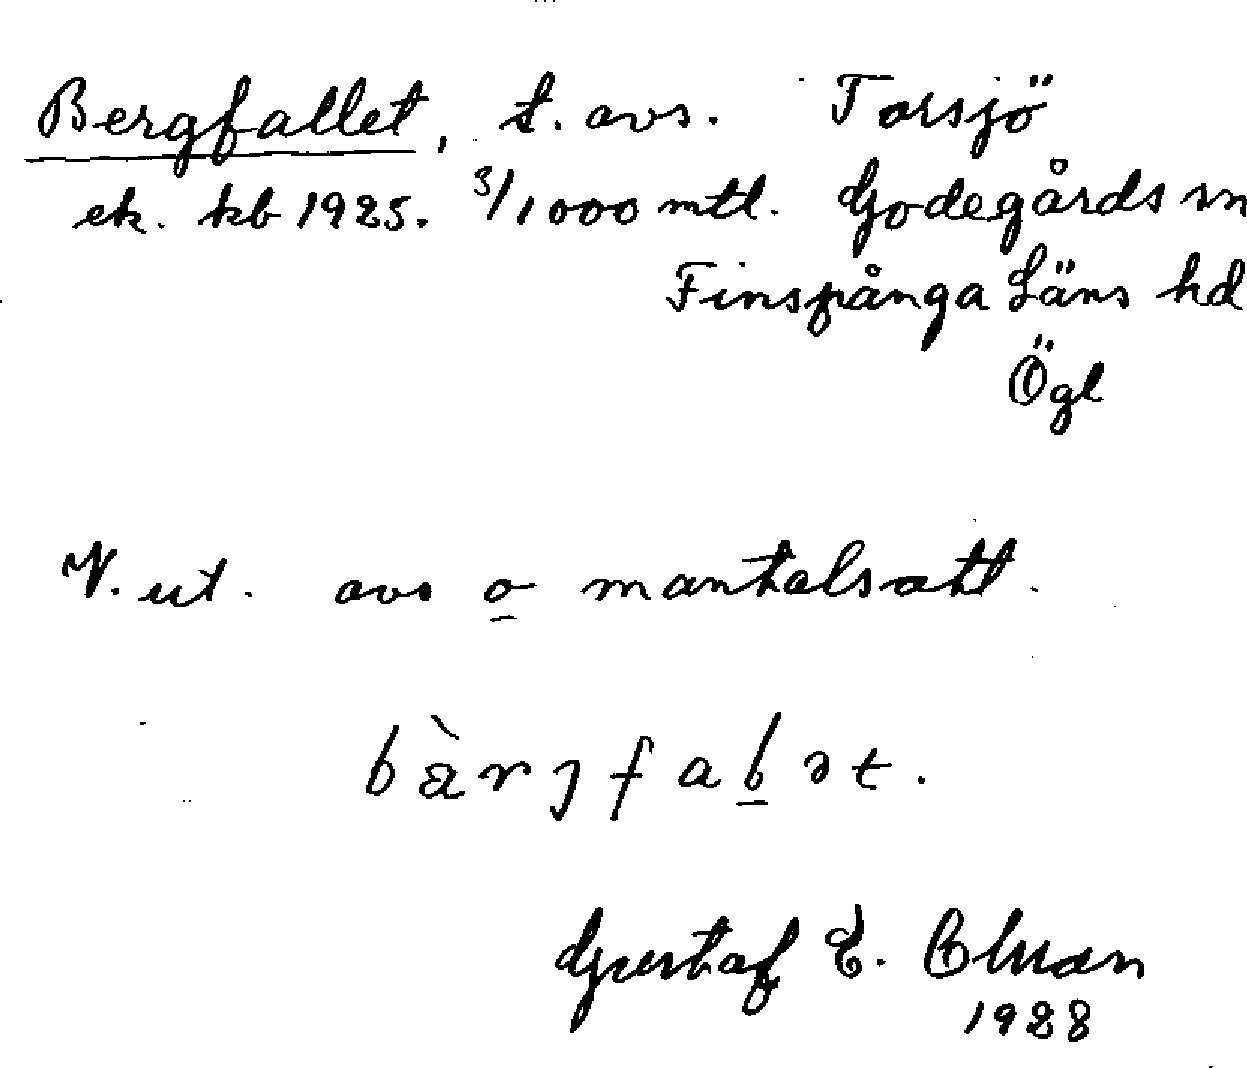 Bergfallet, t. avs. Torsjö
ek. kb 1925. 3/1000 mtl. Godegårds sn
Finspånga Läns hd
Ögl
V. ut. avs o mantalsatt.
bàrjfaḷət.
Gustaf E.
1928